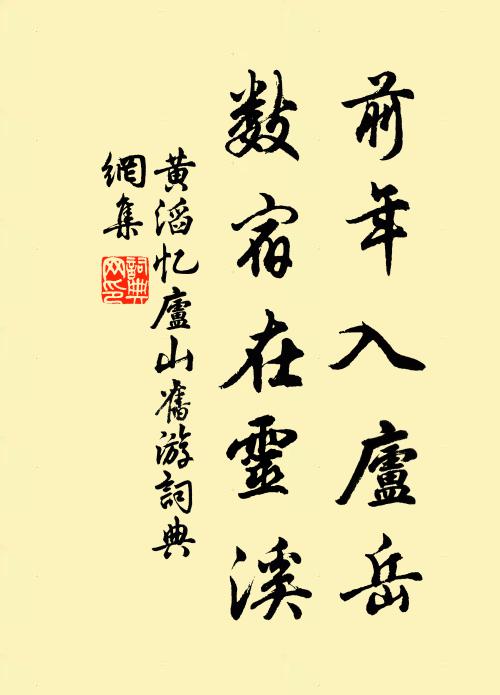 前年入廬岳
数宿在靈溪
黄滔忆廬山舊游詞典
網集
詞典
网印